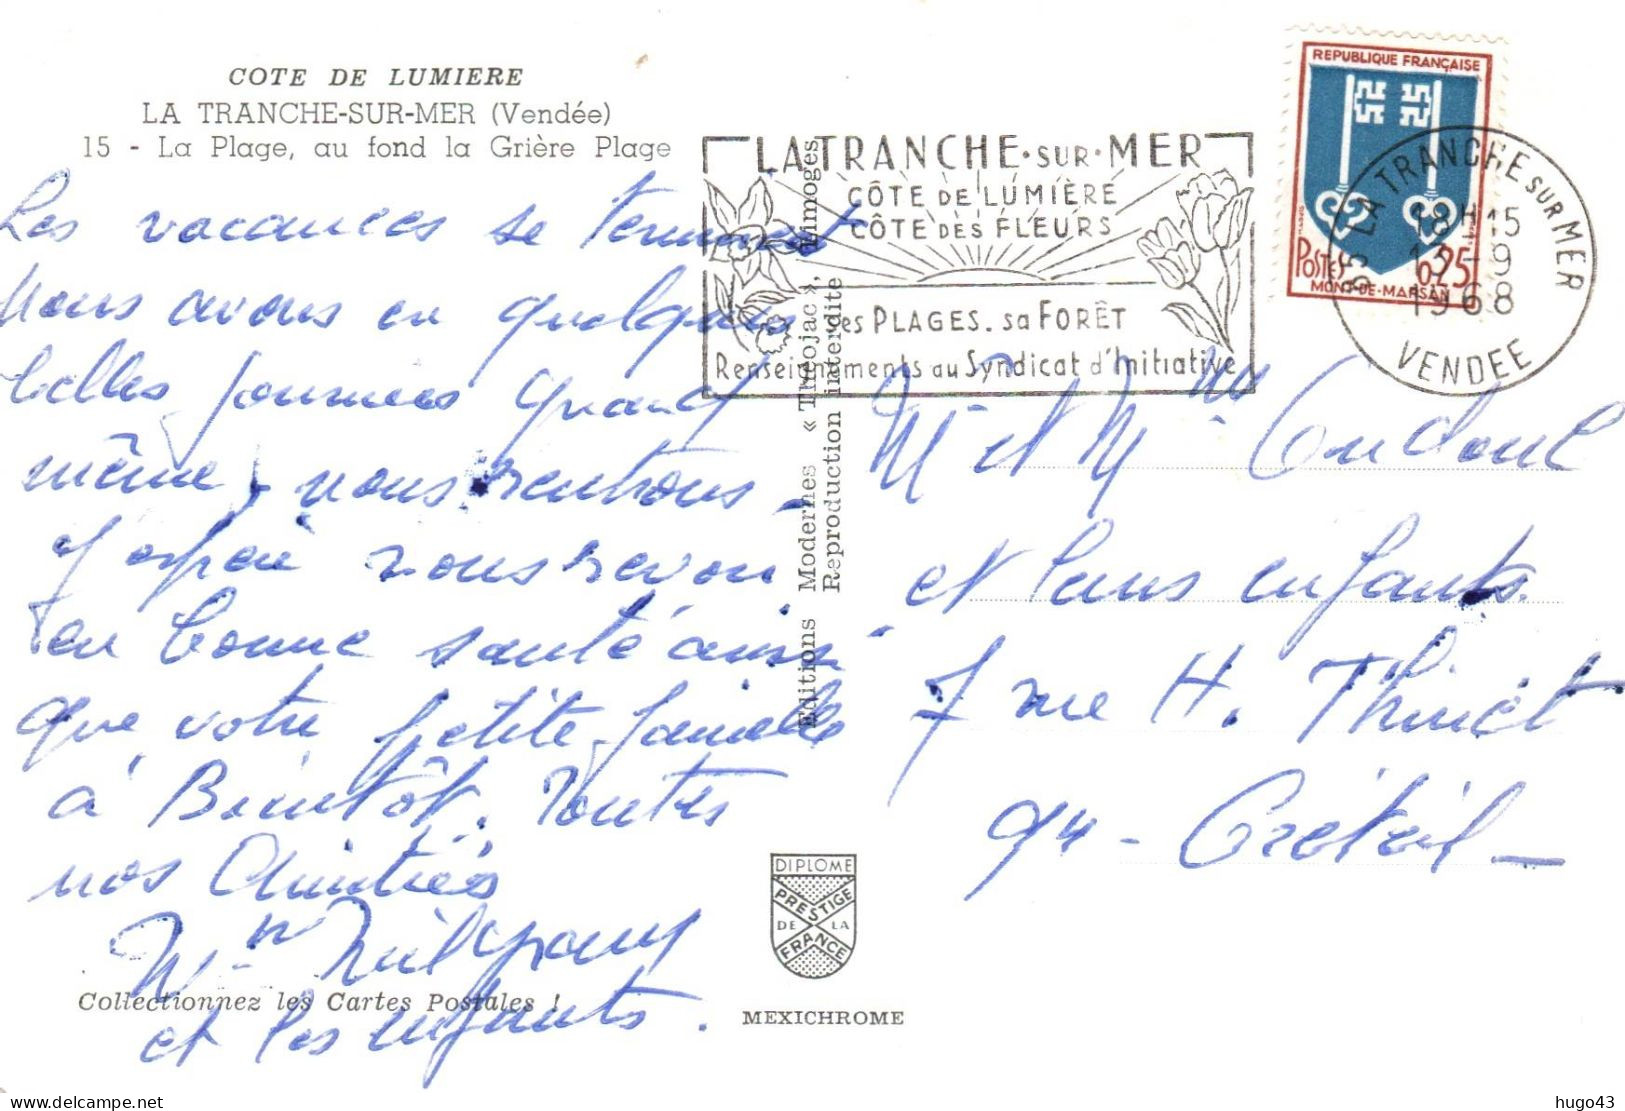 COTE DE LUMIERE
LA TRANCHE-SUR-MER (Vendée)
15 - La Plage, au fond la Grière Plage
Les vacances se terminent
nous avons eu quelques
belles journées quand
même, nous rentrons -
J'espère vous revoir
en bonne santé ainsi
que votre petite famille
à Bientôt. Toutes
nos Amitiés
et les enfants.
Collectionnez les Cartes Postales !
Editions Modernes « Théojac », Limoges
Reproduction interdite
DIPLOME
PRESTIGE
DE LA
FRANCE
MEXICHROME
LA TRANCHE·SUR·MER
CÔTE DE LUMIÈRE
CÔTE DES FLEURS
ses PLAGES. sa FORÊT
Renseignements au Syndicat d'Initiative
REPUBLIQUE FRANÇAISE
POSTES 0,25
MONT-DE-MARSAN
85 LA TRANCHE SUR MER
18H15
13-9
1968
VENDEE
Mr et Mme
et leurs enfants.
7 rue H. Thiriet
94 - Créteil -
hugo43